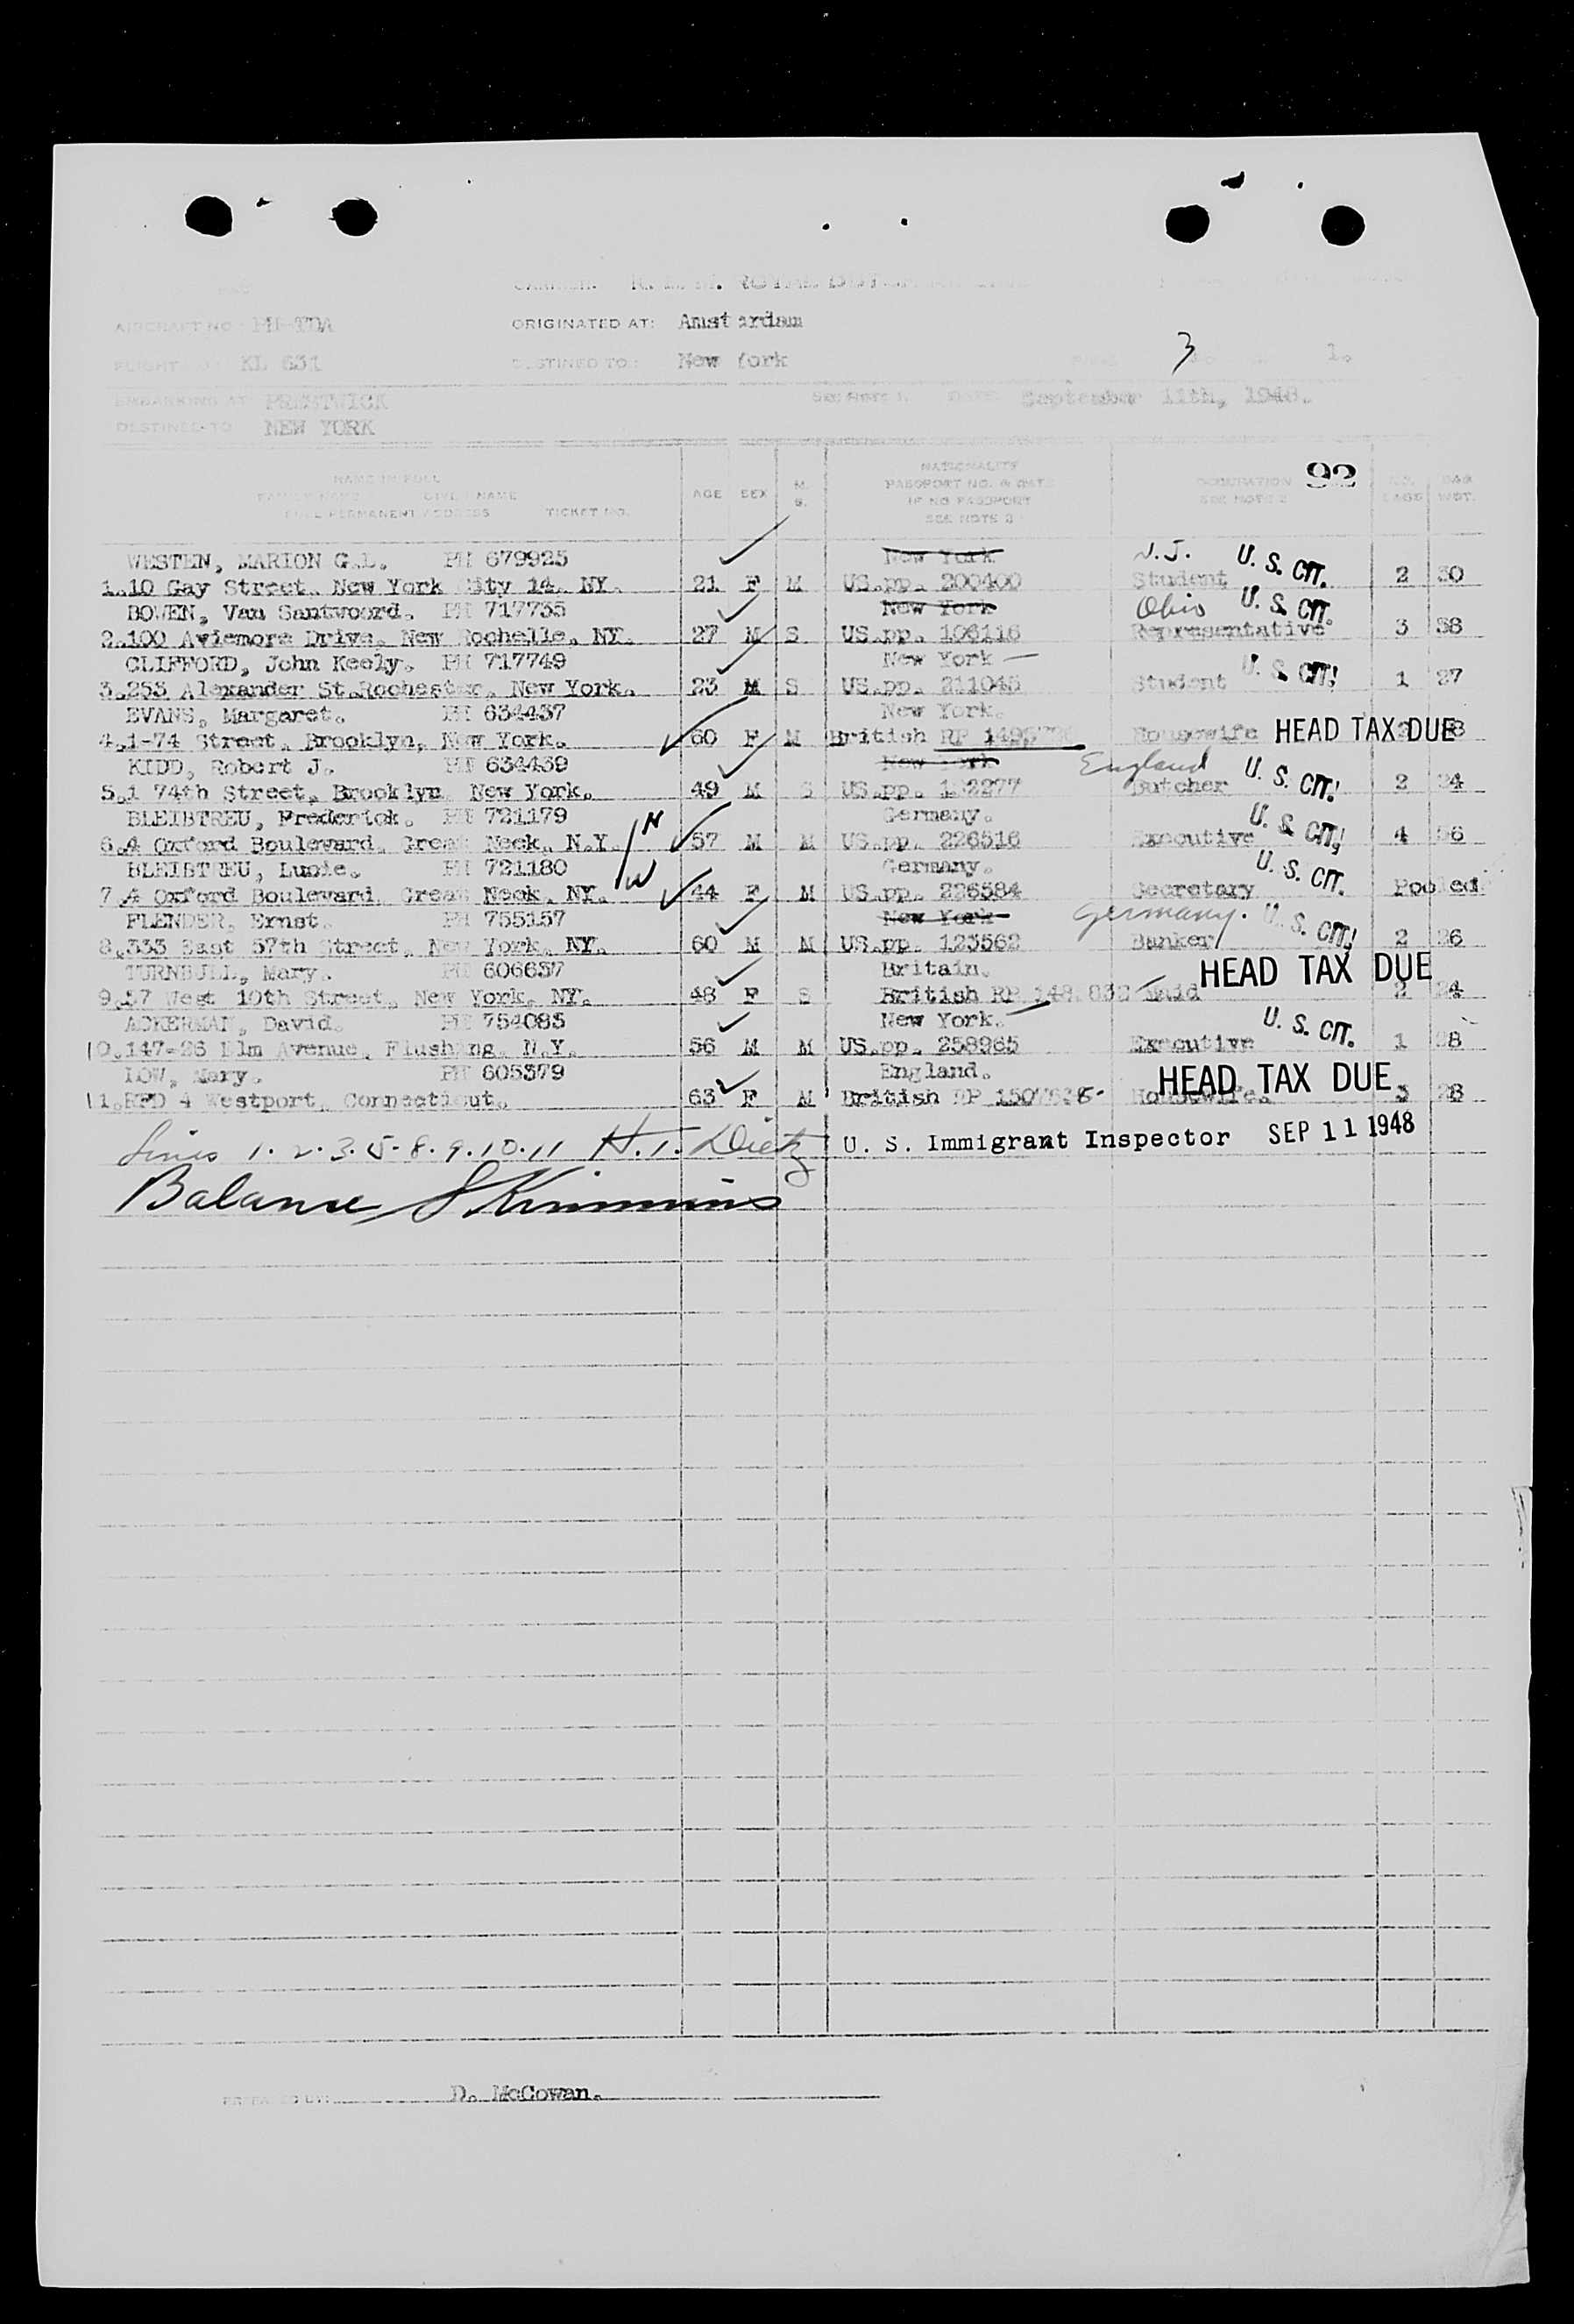 CARRIER: K. L. M. ROYAL DUTCH
AIRCRAFT NO: PH-TDA ORIGINATED AT: Amsterdam
FLIGHT KL 631 DESTINED TO: New York 3 1.
EMBARKING AT PRESTWICK SEE NOTE 1. DATE September 11th, 1948.
DESTINED TO NEW YORK
92
NAME IN FULL
FAMILY NAME GIVEN NAME
FULL PERMANENT ADDRESS TICKET NO.
AGE SEX M. S.
NATIONALITY
PASSPORT NO. & DATE
IF NO PASSPORT
SEE NOTE 2
OCCUPATION
SEE NOTE 2
NO. BAGS BAG WGT.
WESTEN, MARION G.L. PH 679925 New York N.J. U. S. CIT.
1.10 Gay Street, New York City 14. NY. 21 F M US.pp. 200400 Student 2 30
BOWEN, Van Santwoord. PH 717735 New York Ohio U. S. CIT.
2.100 Aviemore Drive, New Rochelle. NY. 27 M S US.pp. 106116 Representative 3 38
CLIFFORD, John Keely. PH 717749 New York U. S. CIT.
3.253 Alexander St.Rochester. New York. 23 M S US.pp. 211045 Student 1 27
EVANS, Margaret. PH 634437 New York.
4.1-74 Street, Brooklyn, New York. 60 F M British RP Housewife HEAD TAX DUE
KIDD, Robert J. PH 634439 New York England U. S. CIT.
5.1 74th Street, Brooklyn New York. 49 M S US.pp. Butcher 2 24
BLEIBTREU, Frederick. PH 721179 H Germany. U. S. CIT.
6.4 Oxford Boulevard. Great Neck. N.Y. 57 M M US.pp. 226516 Executive 4 56
BLEIBTREU, Lucie. PH 721180 W Germany. U. S. CIT.
7.4 Oxford Boulevard. Great Neck. NY. 44 F M US.pp. 226584 Secretary Pooled
FLENDER, Ernst. PH 755157 New York Germany. U. S. CIT.
8.333 East 57th Street. New York. NY. 60 M M US.pp. 123562 Banker 2 26
TURNBULL, Mary. PH 606637 Britain. HEAD TAX DUE
9.57 West 10th Street, New York. NY. 48 F S British RP Maid 2 24
ACKERMAN, David. PH 754085 New York. U. S. CIT.
10.147-26 Elm Avenue. Flushing. N.Y. 56 M M US.pp. 258965 Executive 1 18
LOW, Mary. PH 605379 England. HEAD TAX DUE
11.RFD 4 Westport. Connecticut. 63 F M British RP Housewife. 3 28
Lines 1.2.3.5.8.9.10.11 H.T. Dietz U. S. Immigrant Inspector SEP 11 1948
Balance S Kimmins
PREPARED BY: D. McCowan.